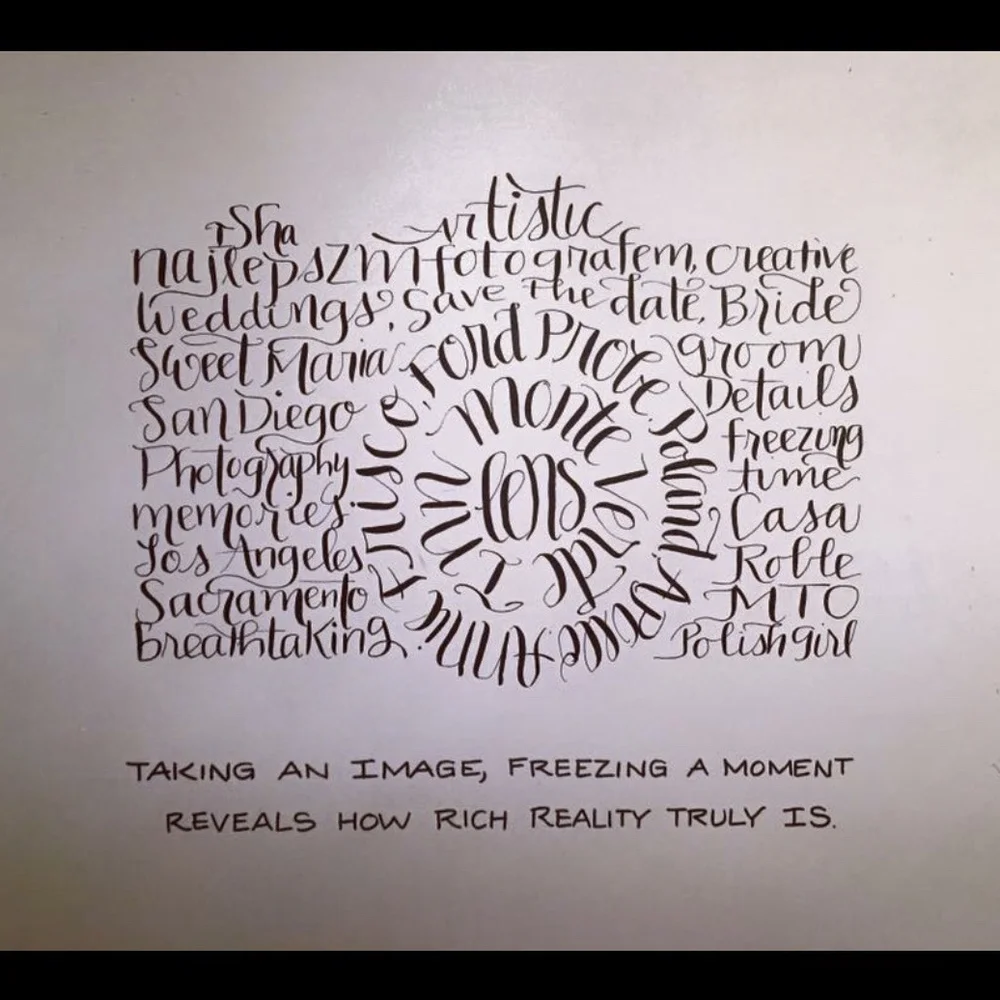 Isha
artistic
najlepszm fotografem, creative
Weddings, Save the date, Bride
Sweet Maria
groom
San Diego
Details
Photography
freezing
time
memories
Casa
Los Angeles
Roble
Sacramento
MTO
breathtaking
Polish girl
Ford Probe Poland Apolle Anna Fajusco
Monte Verde Run
lens
TAKING AN IMAGE, FREEZING A MOMENT
REVEALS HOW RICH REALITY TRULY IS.